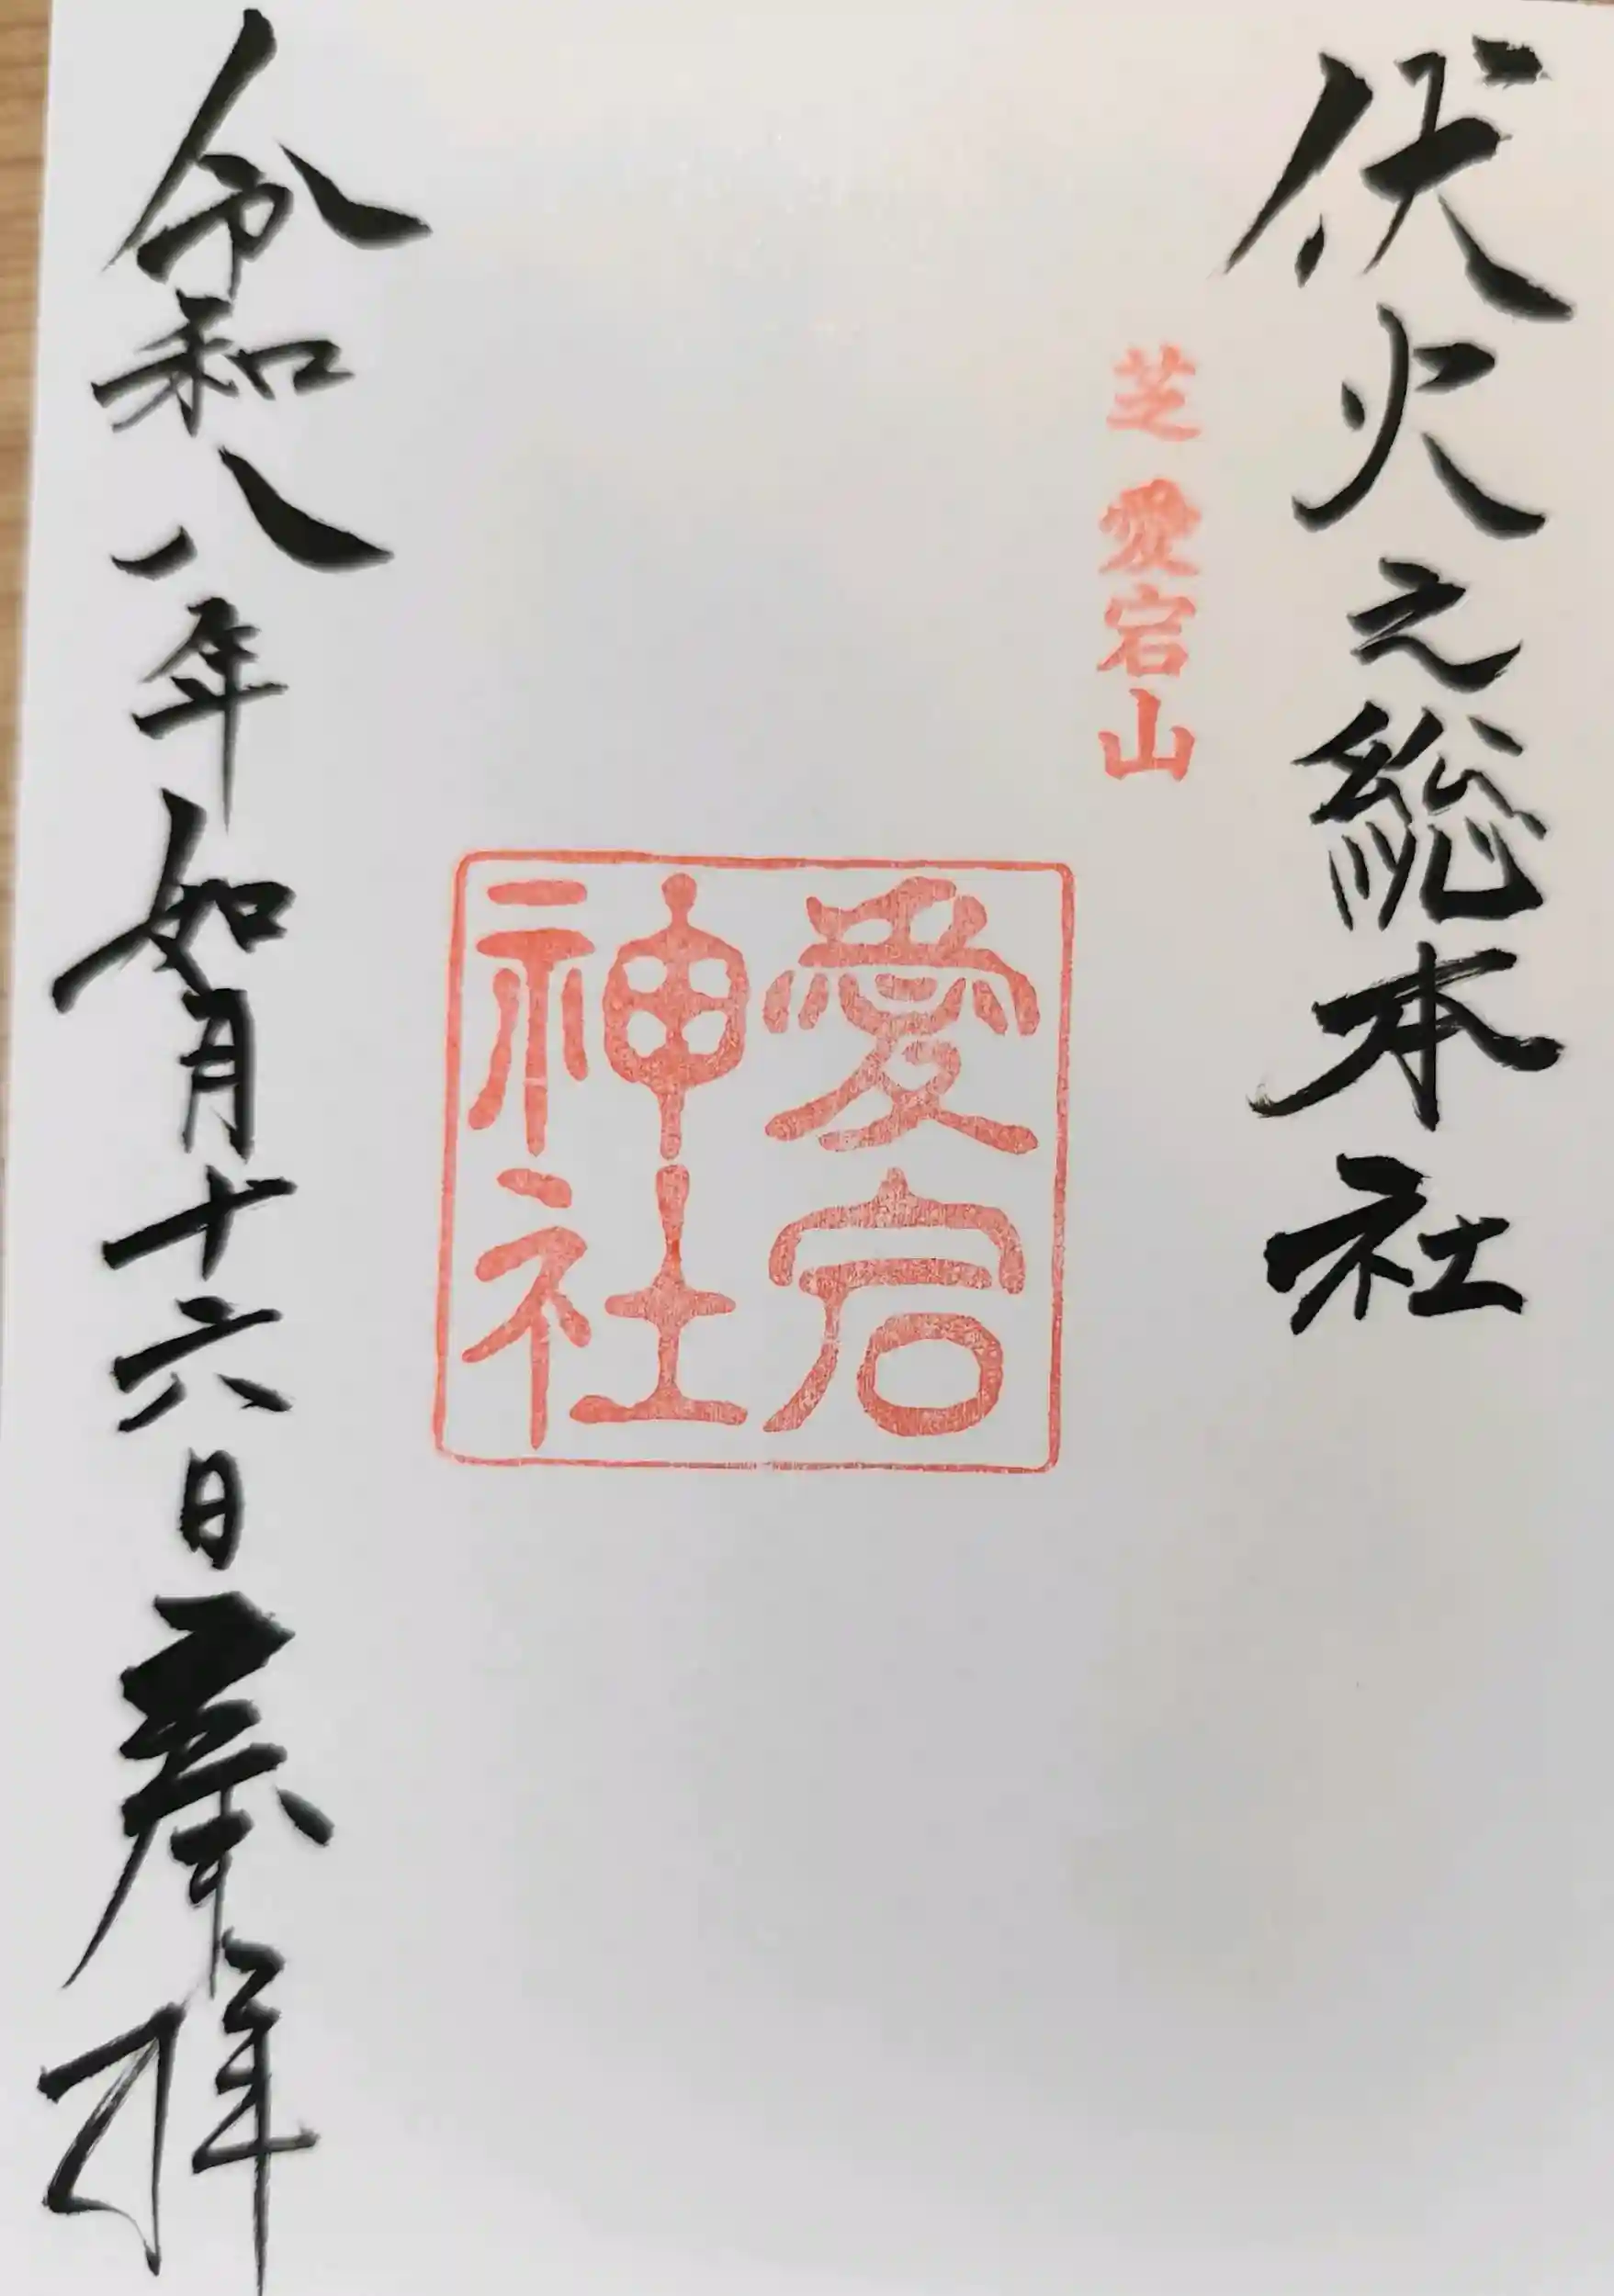 伏火之総本社
芝 愛宕山
愛宕
神社
令和八年如月十六日奉拝